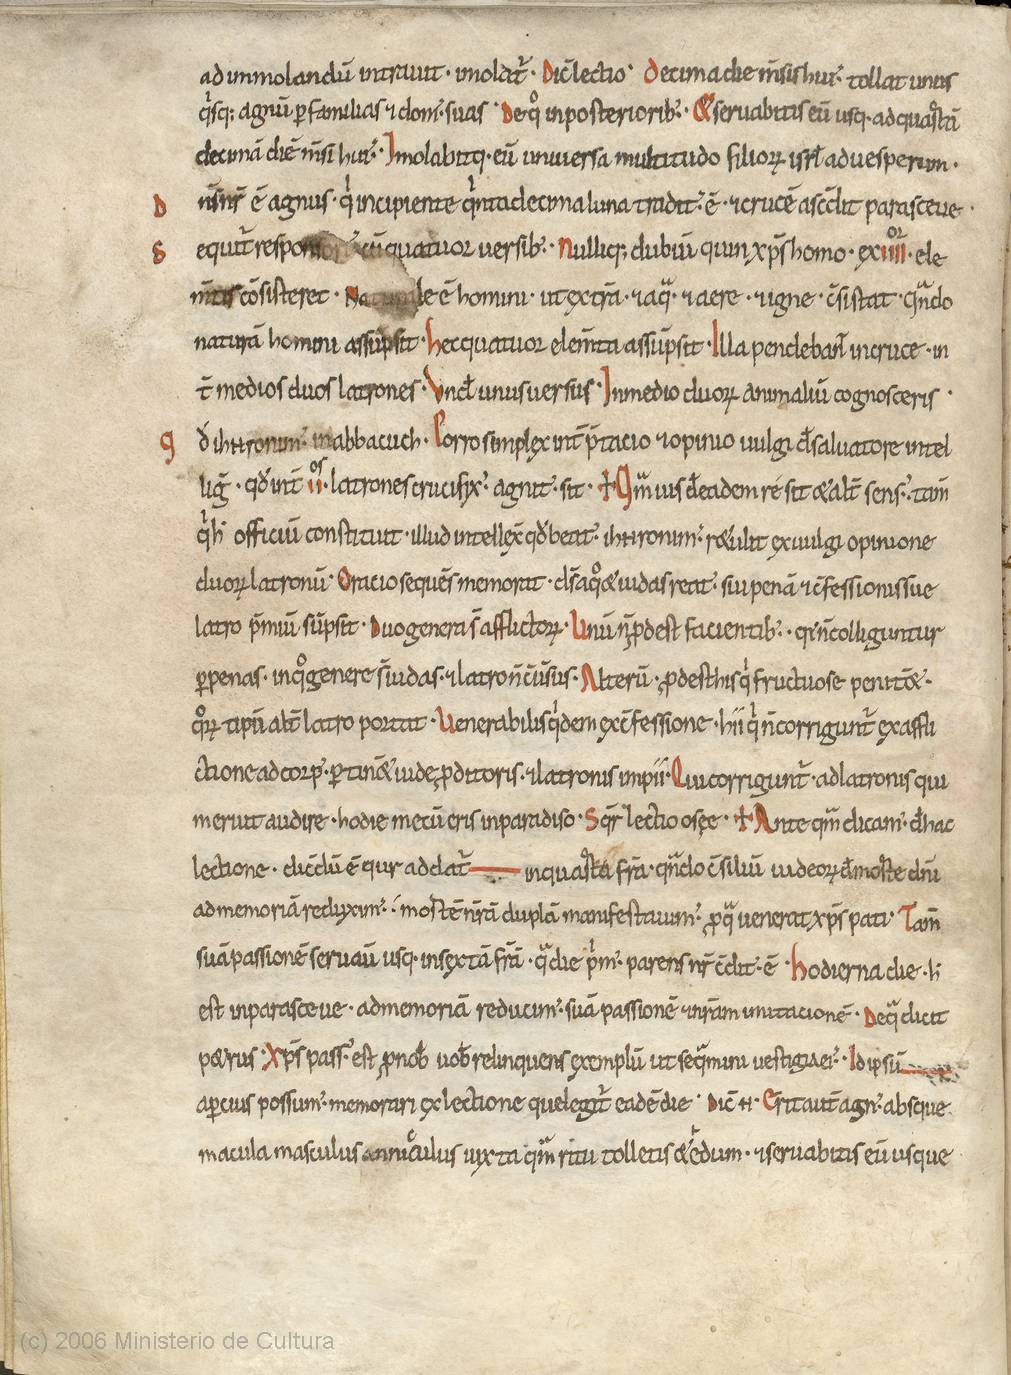 ad inmolandū intrauit · imolat᷑ · Dic̄ lectio · Decima die m̄sis hui᷒ · tollat unus
q̇sq; agnū ꝑ familias ⁊ dom᷒ suas · De qͦ in posteriorib᷒ · Et seruabitis eū usq · ad quartā
decimā diē m̄si hui᷒ · Imolabitq · eū uniuersa multitudo filioꝝ isrł ad uesperum ·
D ns̄ nr̄ ē agnus · q̇ incipiente q̇nta decima luna tradit᷒ ē · ⁊ crucē ascēdit parasceue ·
S equit᷑ cū quatuor uersib᷒ · Nulliq; dubiū quin xp̄s homo · ex iiiior · ele
m̄tis cōsisteret · ē homini · ut ex t̄ra · ⁊ aqᷓ · ⁊ aere · ⁊ igne · c̄sistat · qᷓndo
naturā homini assūpsit · Hec quatuor elem̄ta assūpsit · Illa pendebant in cruce · in
t̄ medios duos latrones · Vnd̄ unus uersus · In medio duoꝝ animaliū cognosceris ·
Q d̄ ihrronim᷒ in abbacuch · Porro simplex int̄p̄tacio ⁊ opinio uulgi d̄ saluatore intel
liḡ · qd̄ int̄ iios · latrones crucifix᷒ · agnit᷒ · sit · ☩ Qm̄ uis d̄ eadem re sit & alt̄ sens᷒ · tam̄
q̇ h̄ officiū constituit · illud intellex̄ qd̄ beat᷒ · ihrronim᷒ · retulit ex uulgi opinione
duoꝝ latronū · Oracio sequēs memorat · d̄s a qͦ & iudas reat᷒ · sui penā ⁊ c̄fessionis sue
latro p̄miū sūpsit · Duo genera s̄ afflictoꝝ · Unū n̄ ꝓdest facientib᷒ · qr̄ n̄ colliguntur
ꝑ penas · in qͦ genere s̄ iudas · ⁊ latro n̄ c̄ūsus · Alterū · ꝓdest his q̇ fructuose penitēt ·
qͦꝝ tipū alt̄ latro portat · Venerabilis q̇dem ex c̄fessione · hii q̇ n̄ corrigunt᷑ ex affli
ctione ad corp᷒ · ꝑtinēt iude ꝓditoris · ⁊ latronis impii · Qui corrigunt᷑ · ad latronis qui
meruit audire · hodie mecū eris in paradiso · Sqr̄ lectio osee · ☩ Ante qm̄ dicam᷒ · d̄ hac
lectione · dicēdū ē qur addat᷑ in quarta fr̄ia · qᷓndo c̄siliū iudeoꝝ d̄ morte dn̄i
ad memoriā reduxim᷒ · i morte nr̄am duplā manifestauim᷒ · ꝓ qᷓ uenerat xp̄s pati · Tam̄
suā passionē seruaū usq · in sextā fr̄iā · qᷓ die p̄m᷒ · parens nr̄ c̄dit᷒ ē · Hodierna die · h̄
est in parasceue · ad memoriā reducim᷒ · suā passionē ⁊ nr̄am imitacionē · De qᷓ dicit
petrus · Xp̄s pass᷒ est ꝓ nob̄ uob̄ relinquens exemplū ut seqᷓmini uestigia ei᷒ · Id ipsū
aꝑcius possum᷒ · memorari ex lectione que legit᷑ eadē die · Dic̄ · Erit aut̄ agn᷒ · absque
macula masculus anniculus iuxta qm̄ ritū tolletis & hedum · ⁊ seruabitis eū usque